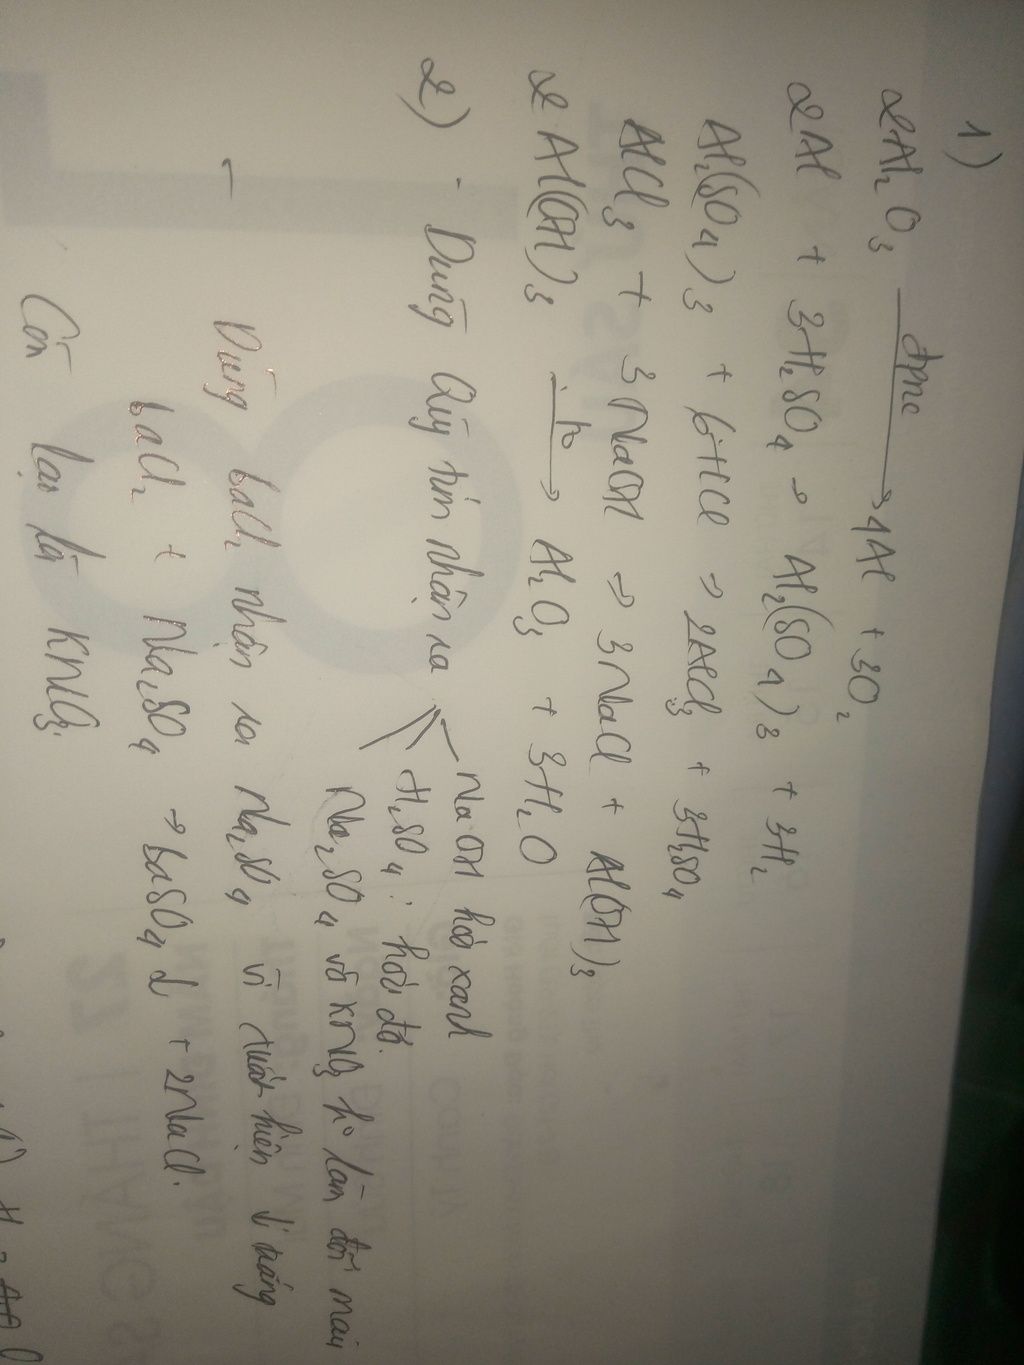 1)
2Al₂O₃ đpnc → 4Al + 3O₂
2Al + 3H₂SO₄ → Al₂(SO₄)₃ + 3H₂
Al₂(SO₄)₃ + 6HCl → 2AlCl₃ + 3H₂SO₄
AlCl₃ + 3NaOH → 3NaCl + Al(OH)₃
2Al(OH)₃ t° → Al₂O₃ + 3H₂O
2) - Dùng Quỳ tím nhận ra
NaOH hoá xanh
H₂SO₄: hoá đỏ.
Na₂SO₄ và KNO₃ ko làm đổi màu
- Dùng baCl₂ nhận ra Na₂SO₄ vì xuất hiện ↓ trắng
baCl₂ + Na₂SO₄ → baSO₄ ↓ + 2NaCl.
Còn lại là KNO₃.